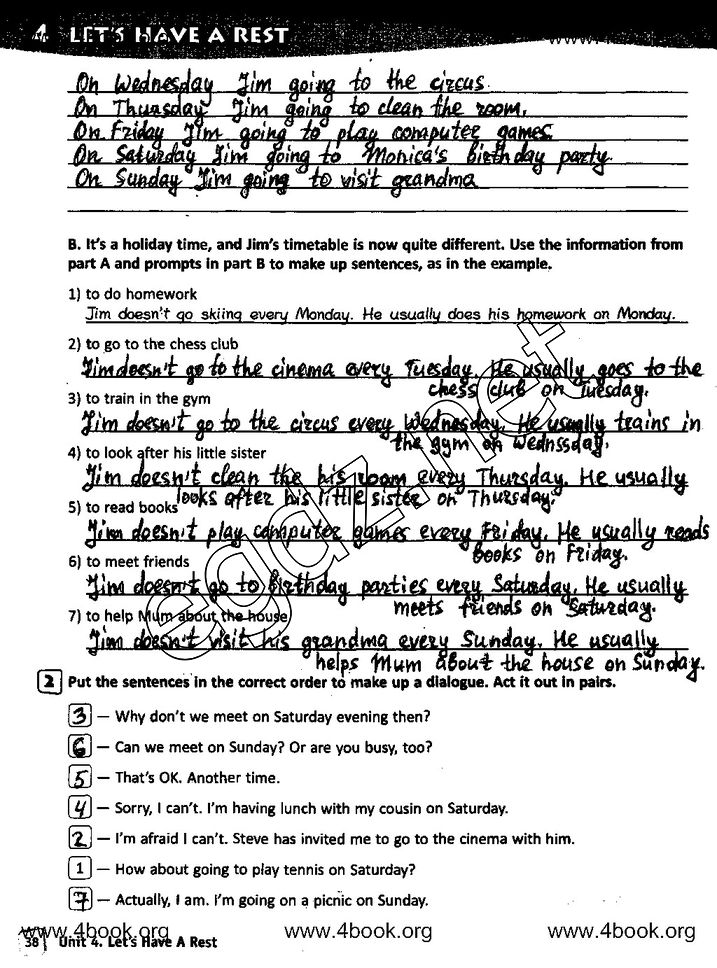 4 LET'S HAVE A REST
On Wednesday Jim going to the circus.
On Thursday Jim going to clean the room.
On Friday Jim going to play computer games.
On Saturday Jim going to Monica's birthday party.
On Sunday Jim going to visit grandma
B. It's a holiday time, and Jim's timetable is now quite different. Use the information from
part A and prompts in part B to make up sentences, as in the example.
1) to do homework
Jim doesn't go skiing every Monday. He usually does his homework on Monday.
2) to go to the chess club
Jim doesn't go to the cinema every Tuesday. He usually goes to the
chess club on Tuesday.
3) to train in the gym
Jim doesn't go to the circus every Wednesday. He usually trains in
the gym on Wednssday.
4) to look after his little sister
Jim doesn't clean the his room every Thursday. He usually
looks after his little sister on Thursday.
5) to read books
Jim doesn't play computer games every Friday. He usually reads
books on Friday.
6) to meet friends
Jim doesn't go to birthday parties every Saturday. He usually
meets friends on Saturday.
7) to help Mum about the house
Jim doesn't visit his grandma every Sunday. He usually
helps Mum about the house on Sunday.
2 Put the sentences in the correct order to make up a dialogue. Act it out in pairs.
3 — Why don't we meet on Saturday evening then?
6 — Can we meet on Sunday? Or are you busy, too?
5 — That's OK. Another time.
4 — Sorry, I can't. I'm having lunch with my cousin on Saturday.
2 — I'm afraid I can't. Steve has invited me to go to the cinema with him.
1 — How about going to play tennis on Saturday?
7 — Actually, I am. I'm going on a picnic on Sunday.
www.4book.org www.4book.org www.4book.org
38 Unit 4. Let's Have A Rest